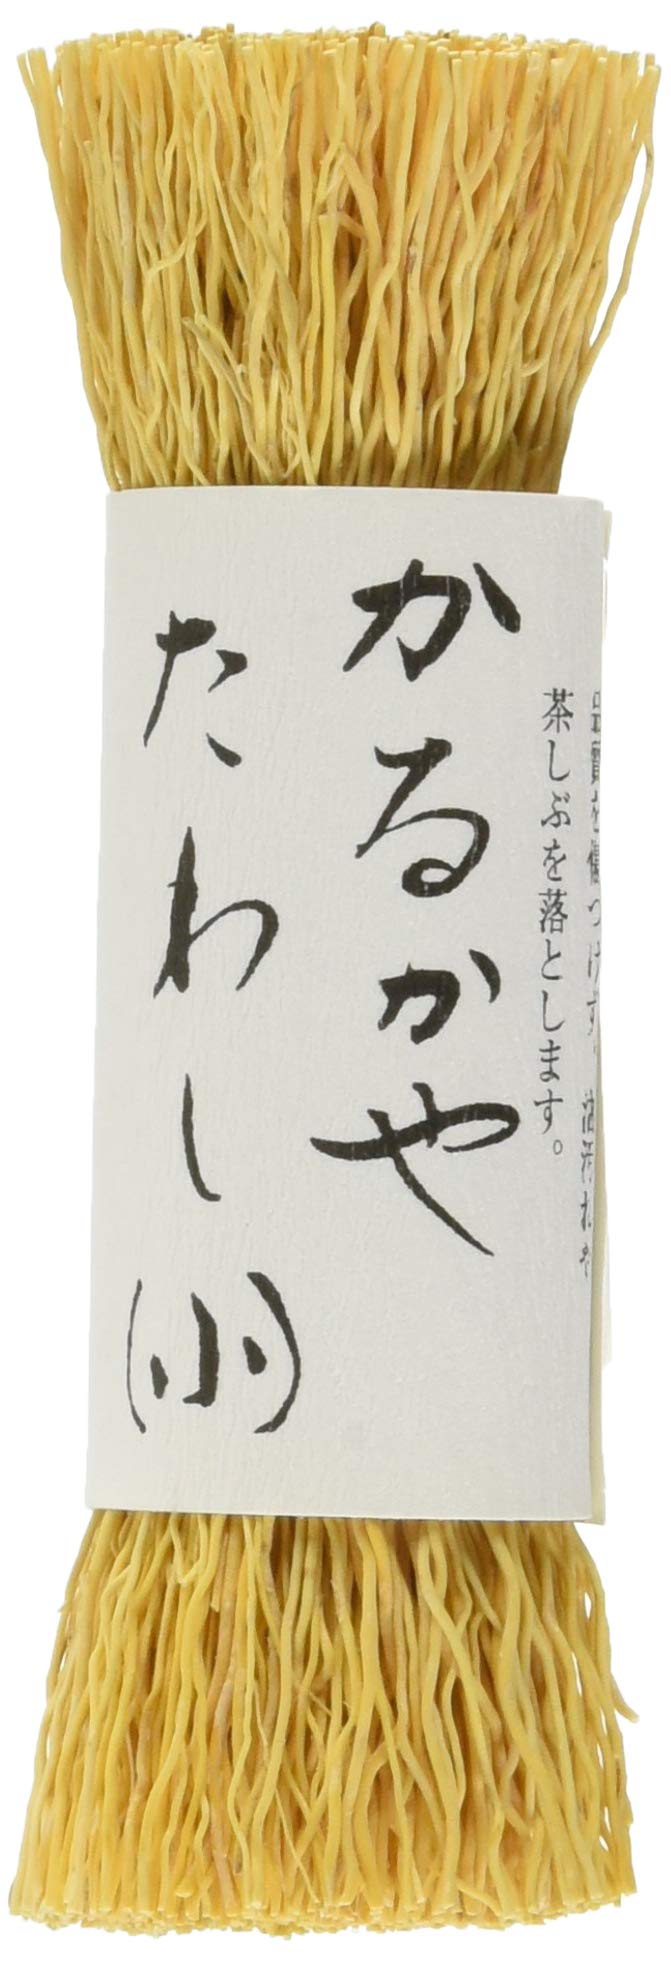 かるかや
たわし(小)
品質を傷つけず、油汚れや
茶しぶを落とします。